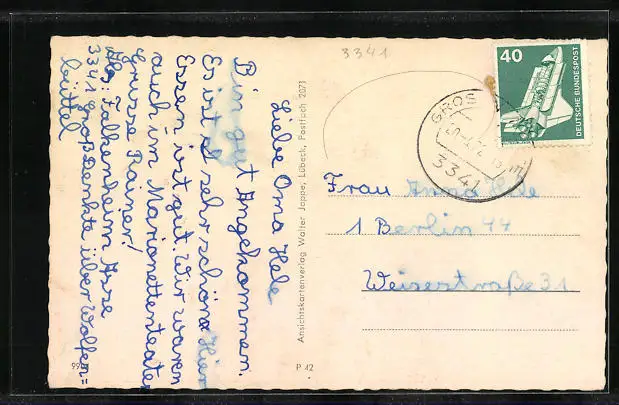 3341
Liebe Oma Hele
Bin gut Angekommen.
Es ist sehr schön Hier
Essen ist gut. Wir waren
auch im Marionettenteater
Grüsse Rainer!
Abs: Falkenheim Asse
3341 Groß Denkte über Wolfen=
büttel
Ansichtskartenverlag Walter Jappe, Lübeck, Postfach 2071
40
DEUTSCHE BUNDESPOST
GROSS
3341
Frau Anna Hele
1 Berlin 44
Weisestraße 31
P 42